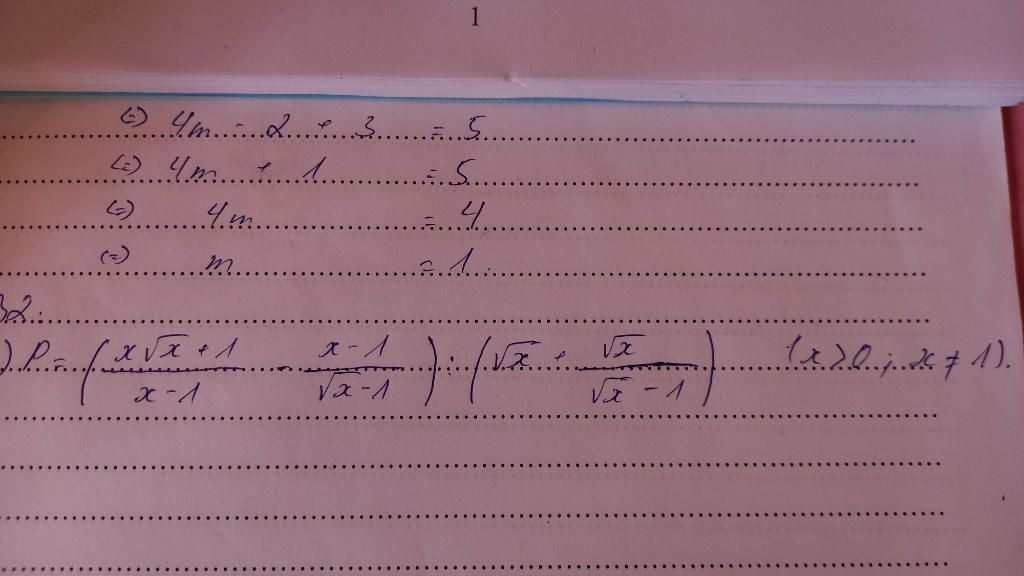 1
(=) 4m - 2 + 3 = 5
(=) 4m + 1 = 5
(=) 4m = 4
(=) m = 1.
32:
) P = ( (x√x + 1)/(x - 1) - (x - 1)/(√x - 1) ) : ( √x + √x/(√x - 1) ) (x > 0 ; x ≠ 1).